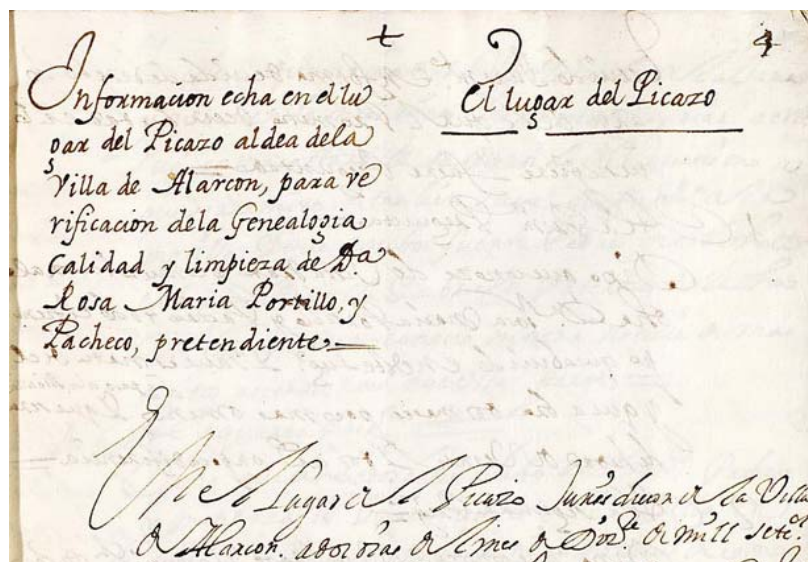 Informacion echa en el lu
gar del Picazo aldea dela
Villa de Alarcon, para ve
rificacion dela Genealogia
Calidad y limpieza de D.a
Rosa Maria Portillo, y
Pacheco, pretendiente
El lugar del Picazo
En el Lugar del Picazo Jurisdicion de la Villa
de Alarcon. a dos dias del mes de de mill sete.os